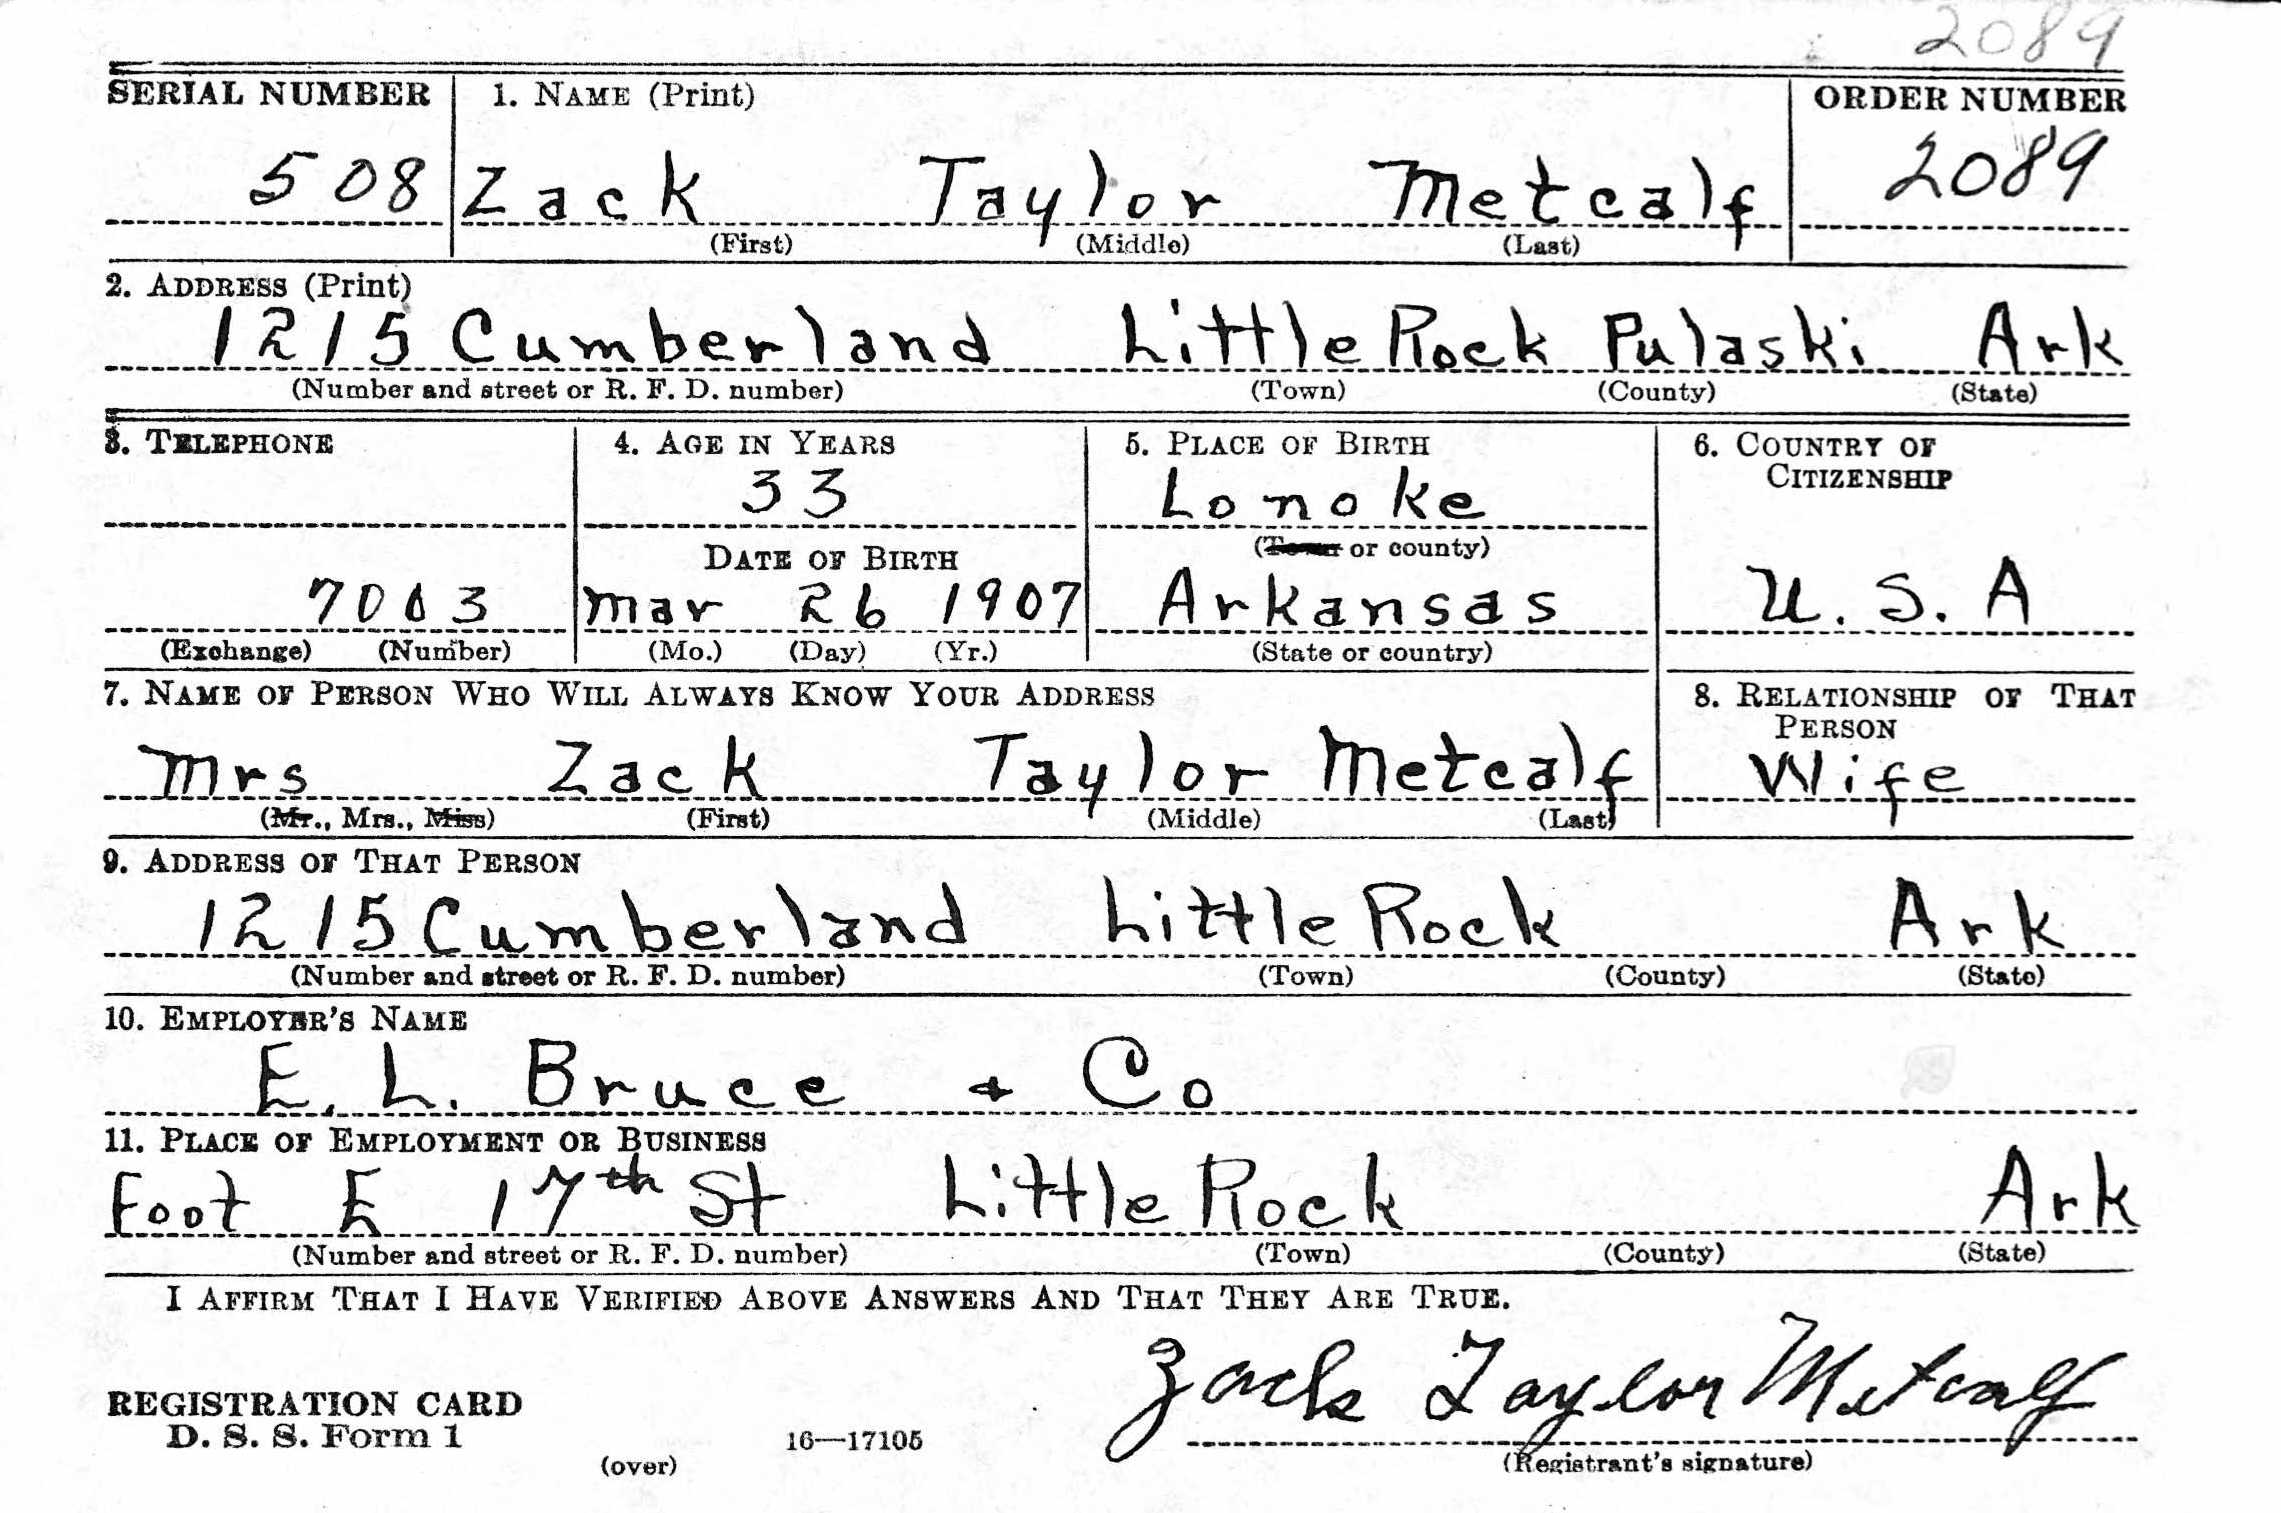 2089
SERIAL NUMBER 1. NAME (Print) ORDER NUMBER
508 Zack Taylor Metcalf 2089
(First) (Middle) (Last)
2. ADDRESS (Print)
1215 Cumberland Little Rock Pulaski Ark
(Number and street or R. F. D. number) (Town) (County) (State)
3. TELEPHONE 4. AGE IN YEARS 5. PLACE OF BIRTH 6. COUNTRY OF CITIZENSHIP
33 Lonoke
DATE OF BIRTH (Town or county)
7003 Mar 26 1907 Arkansas U.S.A
(Exchange) (Number) (Mo.) (Day) (Yr.) (State or country)
7. NAME OF PERSON WHO WILL ALWAYS KNOW YOUR ADDRESS 8. RELATIONSHIP OF THAT PERSON
Mrs Zack Taylor Metcalf Wife
(Mr., Mrs., Miss) (First) (Middle) (Last)
9. ADDRESS OF THAT PERSON
1215 Cumberland Little Rock Ark
(Number and street or R. F. D. number) (Town) (County) (State)
10. EMPLOYER'S NAME
E. L. Bruce & Co
11. PLACE OF EMPLOYMENT OR BUSINESS
Foot E 17th St Little Rock Ark
(Number and street or R. F. D. number) (Town) (County) (State)
I AFFIRM THAT I HAVE VERIFIED ABOVE ANSWERS AND THAT THEY ARE TRUE.
Zack Taylor Metcalf
REGISTRATION CARD
D. S. S. Form 1 16—17105
(over) (Registrant's signature)